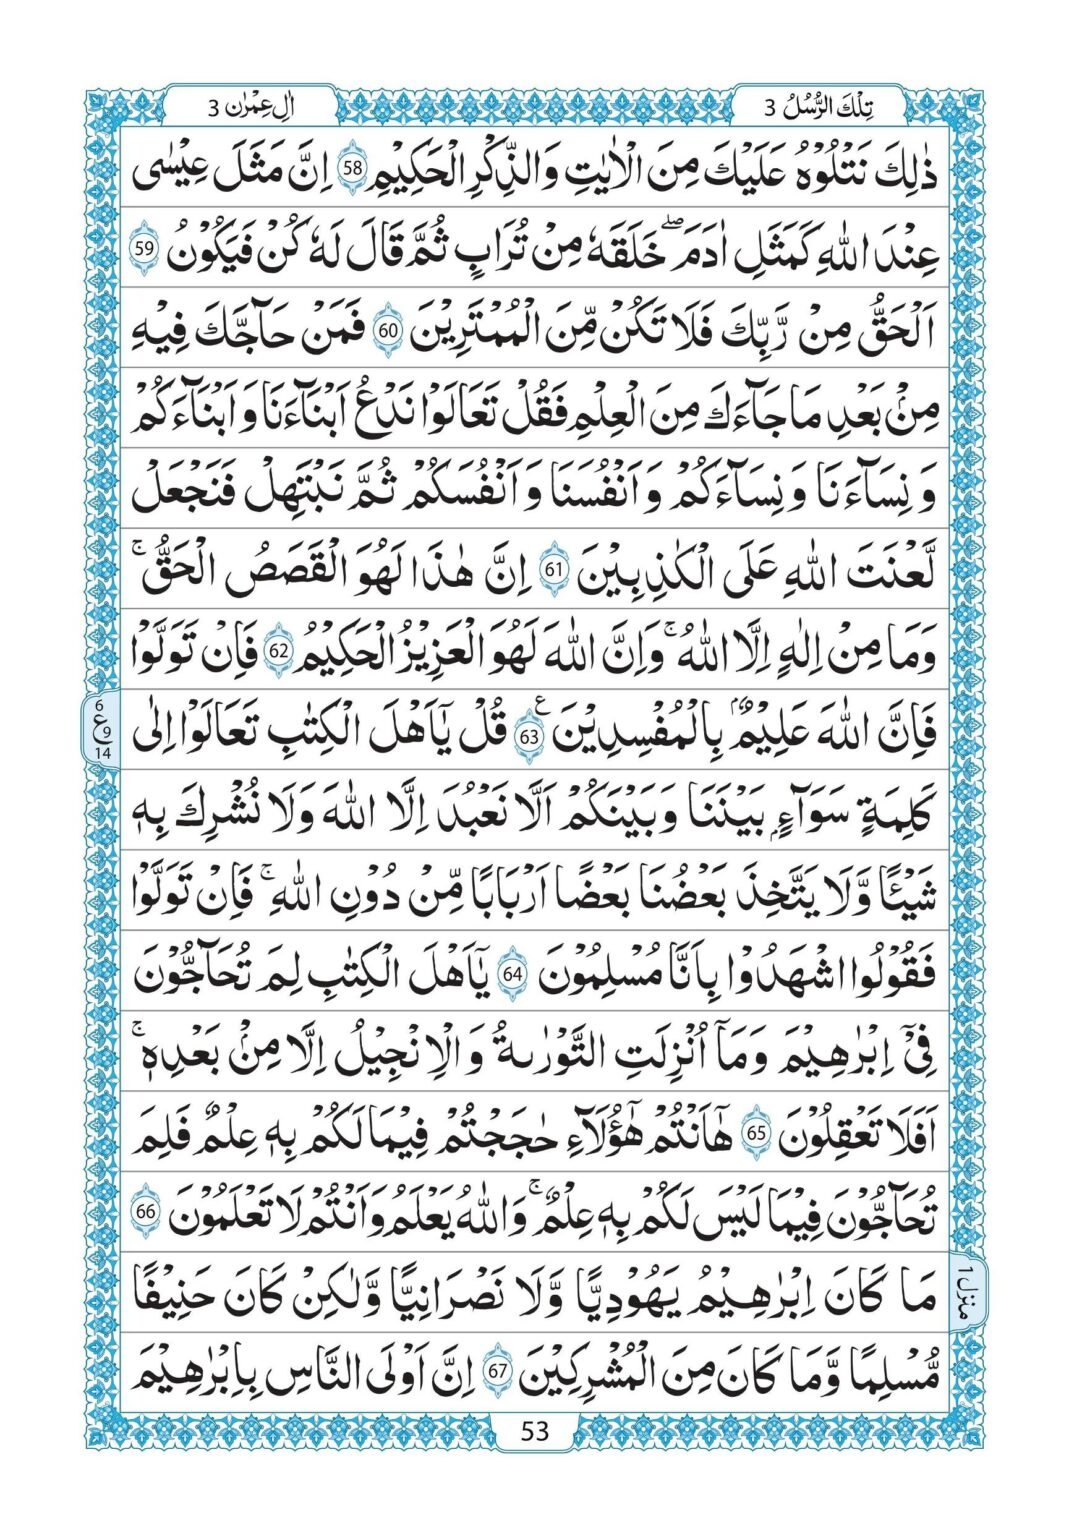 تِلْكَ الرُّسُلُ 3
اٰلِ عِمْرٰن 3
ذٰلِكَ نَتْلُوْهُ عَلَيْكَ مِنَ الْاٰيٰتِ وَالذِّكْرِ الْحَكِيْمِ 58 اِنَّ مَثَلَ عِيْسٰى
عِنْدَ اللّٰهِ كَمَثَلِ اٰدَمَ ۖ خَلَقَهٗ مِنْ تُرَابٍ ثُمَّ قَالَ لَهٗ كُنْ فَيَكُوْنُ 59
اَلْحَقُّ مِنْ رَّبِّكَ فَلَا تَكُنْ مِّنَ الْمُمْتَرِيْنَ 60 فَمَنْ حَآجَّكَ فِيْهِ
مِنْۢ بَعْدِ مَا جَآءَكَ مِنَ الْعِلْمِ فَقُلْ تَعَالَوْا نَدْعُ اَبْنَآءَنَا وَاَبْنَآءَكُمْ
وَنِسَآءَنَا وَنِسَآءَكُمْ وَاَنْفُسَنَا وَاَنْفُسَكُمْ ثُمَّ نَبْتَهِلْ فَنَجْعَلْ
لَّعْنَتَ اللّٰهِ عَلَى الْكٰذِبِيْنَ 61 اِنَّ هٰذَا لَهُوَ الْقَصَصُ الْحَقُّ ۚ
وَمَا مِنْ اِلٰهٍ اِلَّا اللّٰهُ ۚ وَاِنَّ اللّٰهَ لَهُوَ الْعَزِيْزُ الْحَكِيْمُ 62 فَاِنْ تَوَلَّوْا
فَاِنَّ اللّٰهَ عَلِيْمٌۢ بِالْمُفْسِدِيْنَ 63 ع قُلْ يٰٓاَهْلَ الْكِتٰبِ تَعَالَوْا اِلٰى
6
ع 9
14
كَلِمَةٍ سَوَآءٍۢ بَيْنَنَا وَبَيْنَكُمْ اَلَّا نَعْبُدَ اِلَّا اللّٰهَ وَلَا نُشْرِكَ بِهٖ
شَيْـًٔا وَّلَا يَتَّخِذَ بَعْضُنَا بَعْضًا اَرْبَابًا مِّنْ دُوْنِ اللّٰهِ ۚ فَاِنْ تَوَلَّوْا
فَقُوْلُوا اشْهَدُوْا بِاَنَّا مُسْلِمُوْنَ 64 يٰٓاَهْلَ الْكِتٰبِ لِمَ تُحَآجُّوْنَ
فِيْٓ اِبْرٰهِيْمَ وَمَآ اُنْزِلَتِ التَّوْرٰىةُ وَالْاِنْجِيْلُ اِلَّا مِنْۢ بَعْدِهٖ ۚ
اَفَلَا تَعْقِلُوْنَ 65 هٰٓاَنْتُمْ هٰٓؤُلَآءِ حٰجَجْتُمْ فِيْمَا لَكُمْ بِهٖ عِلْمٌ فَلِمَ
تُحَآجُّوْنَ فِيْمَا لَيْسَ لَكُمْ بِهٖ عِلْمٌ ۚ وَاللّٰهُ يَعْلَمُ وَاَنْتُمْ لَا تَعْلَمُوْنَ 66
مَا كَانَ اِبْرٰهِيْمُ يَهُوْدِيًّا وَّلَا نَصْرَانِيًّا وَّلٰكِنْ كَانَ حَنِيْفًا
منزل 1
مُّسْلِمًا وَّمَا كَانَ مِنَ الْمُشْرِكِيْنَ 67 اِنَّ اَوْلَى النَّاسِ بِاِبْرٰهِيْمَ
53